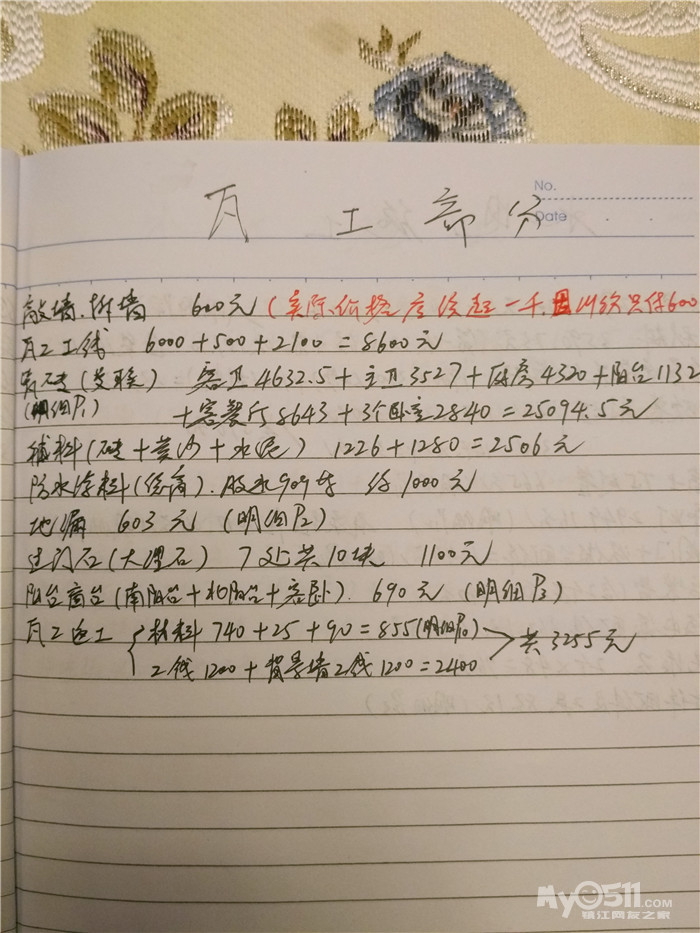 No.
Date
瓦工部分
敲墙、拆墙 600元 (实际价格应该超一千,因此次只付600
瓦工工钱 6000+500+2100=8600元
瓷砖(芒联) 客卫4632.5+主卫3527+厨房4320+阳台1132
(明细P1) +客餐厅8643+3个卧室2840=25094.5元
辅料(砖+黄沙+水泥) 1226+1280=2506元
防水涂料 胶水909等 约1000元
地漏 603元 (明细P2)
过门石(大理石) 7处共10块 1100元
阳台窗台(南阳台+北阳台+客卧). 690元 (明细P3)
瓦工包工 材料740+25+90=855(明细P10) 共3255元
工钱1200+背景墙工钱1200=2400
My0511.com
镇江网友之家